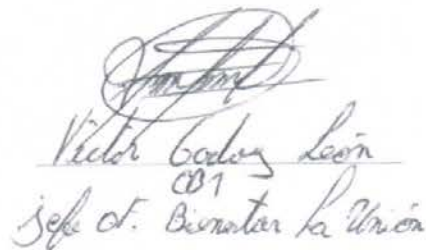 Victor Godoy León
CB1
Jefe Of. Bienestar La Unión